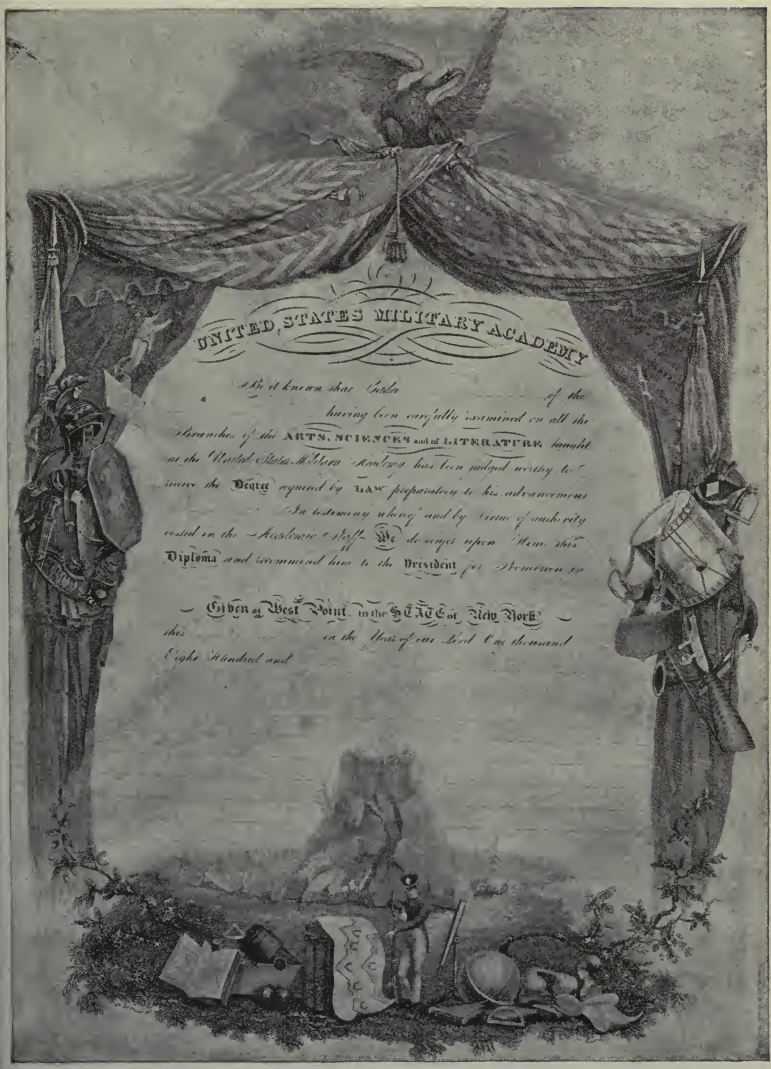 UNITED STATES MILITARY ACADEMY
Be it known that Cadet of the
having been carefully examined on all the
Branches of the ARTS, SCIENCES and of LITERATURE taught
at the United States Military Academy has been judged worthy to
receive the Degree required by LAW preparatory to his advancement
In testimony whereof and by virtue of authority
vested in the Academic Staff We do confer upon Him this
Diploma and recommend him to the President for Promotion in
Given at West Point, in the STATE of New York
this in the Year of our Lord One thousand
Eight Hundred and